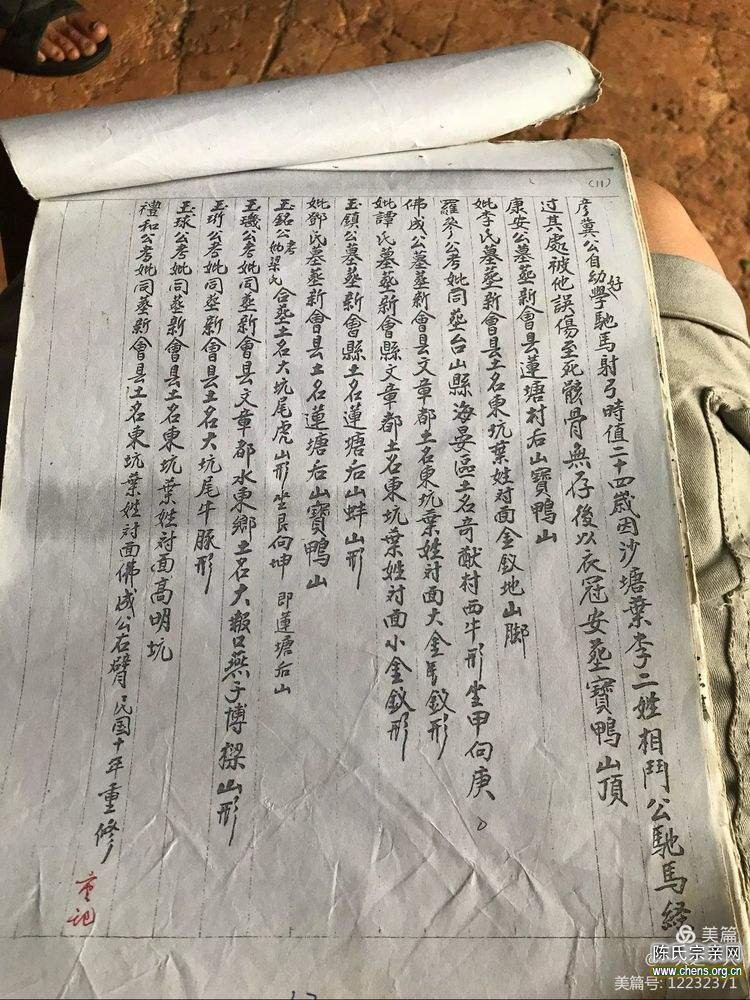 (11)
彦冀公自幼好學馳馬射弓時值二十四歲因沙塘葉李二姓相鬥公馳馬経
过其处被他誤傷至死骸骨無存後以衣冠安葬寶鴨山頂
康安公墓葬新會县蓮塘村后山寶鴨山
妣李氏墓葬新會县土名東坑葉姓対面金釵地山脚
羅参公考妣同葬台山縣海晏區土名奇獣村西牛形坐甲向庚。
佛成公墓葬新會县文章都土名東坑葉姓対面大金釵形
妣譚氏墓葬新會縣文章都土名東坑葉姓対面小金釵形
玉鎮公墓葬新會縣土名蓮塘后山蚌山形
妣鄧氏墓葬新會县土名蓮塘后山寶鴨山
玉銘公考妣梁氏合葬土名大坑尾虎山形坐艮向坤 即蓮塘后山
玉璣公考妣同葬新會县文章都水東鄉土名大塅口燕子博樑山形
玉珩公考妣同葬新會县土名大坑尾牛豚形
玉球公考妣同葬新會县土名東坑葉姓対面高明坑
禮和公考妣同葬新會县土名東坑葉姓対面佛成公右臂民国十年重修
美篇
陈氏宗亲网
www.chens.org.cn
美篇号: 12232371